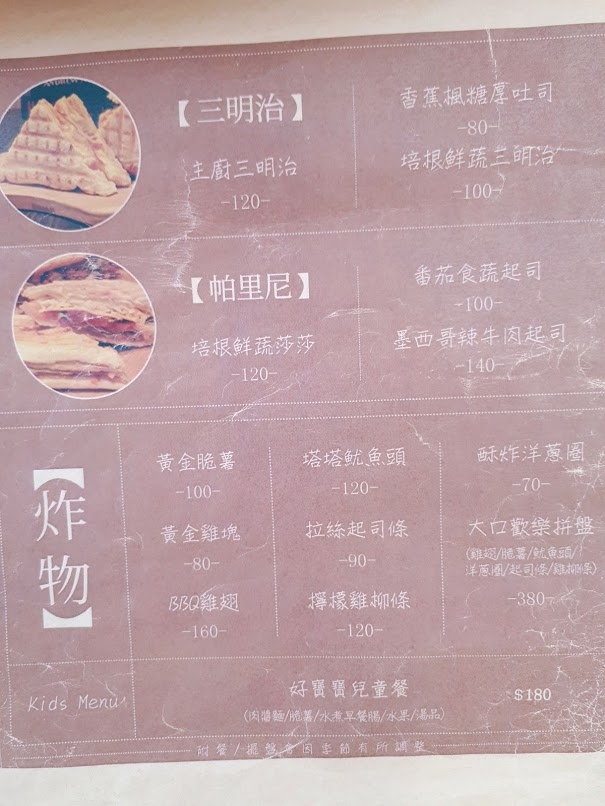 【三明治】
主廚三明治
-120-
香蕉楓糖厚吐司
-80-
培根鮮蔬三明治
-100-
【帕里尼】
培根鮮蔬莎莎
-120-
番茄食蔬起司
-100-
墨西哥辣牛肉起司
-140-
【炸物】
黃金脆薯
-100-
黃金雞塊
-80-
BBQ雞翅
-160-
塔塔魷魚頭
-120-
拉絲起司條
-90-
檸檬雞柳條
-120-
酥炸洋蔥圈
-70-
大口歡樂拼盤
(雞翅/脆薯/魷魚頭/
洋蔥圈/起司條/雞柳條)
-380-
Kids Menu
好寶寶兒童餐
(肉醬麵/脆薯/水煮早餐腸/水果/湯品)
$180
附餐/擺盤會因季節有所調整